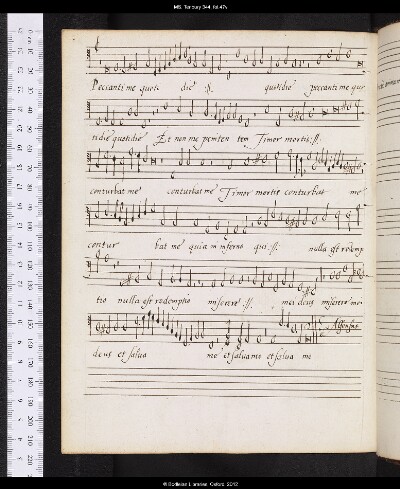 MS. Tenbury 344, fol. 47v
Peccanti me quoti die :||: quotidie peccanti me quo
tidie quotidie Et non me peniten tem Timor mortis :||:
conturbat me conturbat me Timor mortis conturbat me
contur bat me quia in inferno qui :||: nulla est redemp
tio nulla est redemptio miserere :||: mei deus miserere mei
deus et salva me et salva me et salva me
Alfonso
© Bodleian Libraries, Oxford, 2012